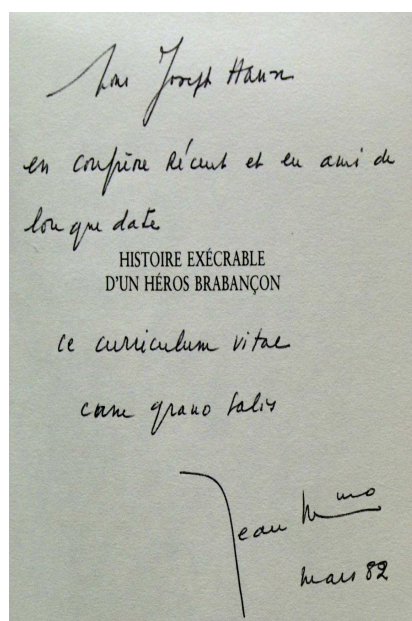 Pour Joseph Hanse
en confrère récent et en ami de
longue date
HISTOIRE EXÉCRABLE
D'UN HÉROS BRABANÇON
ce curriculum vitae
cum grano salis
Jean Muno
mars 82